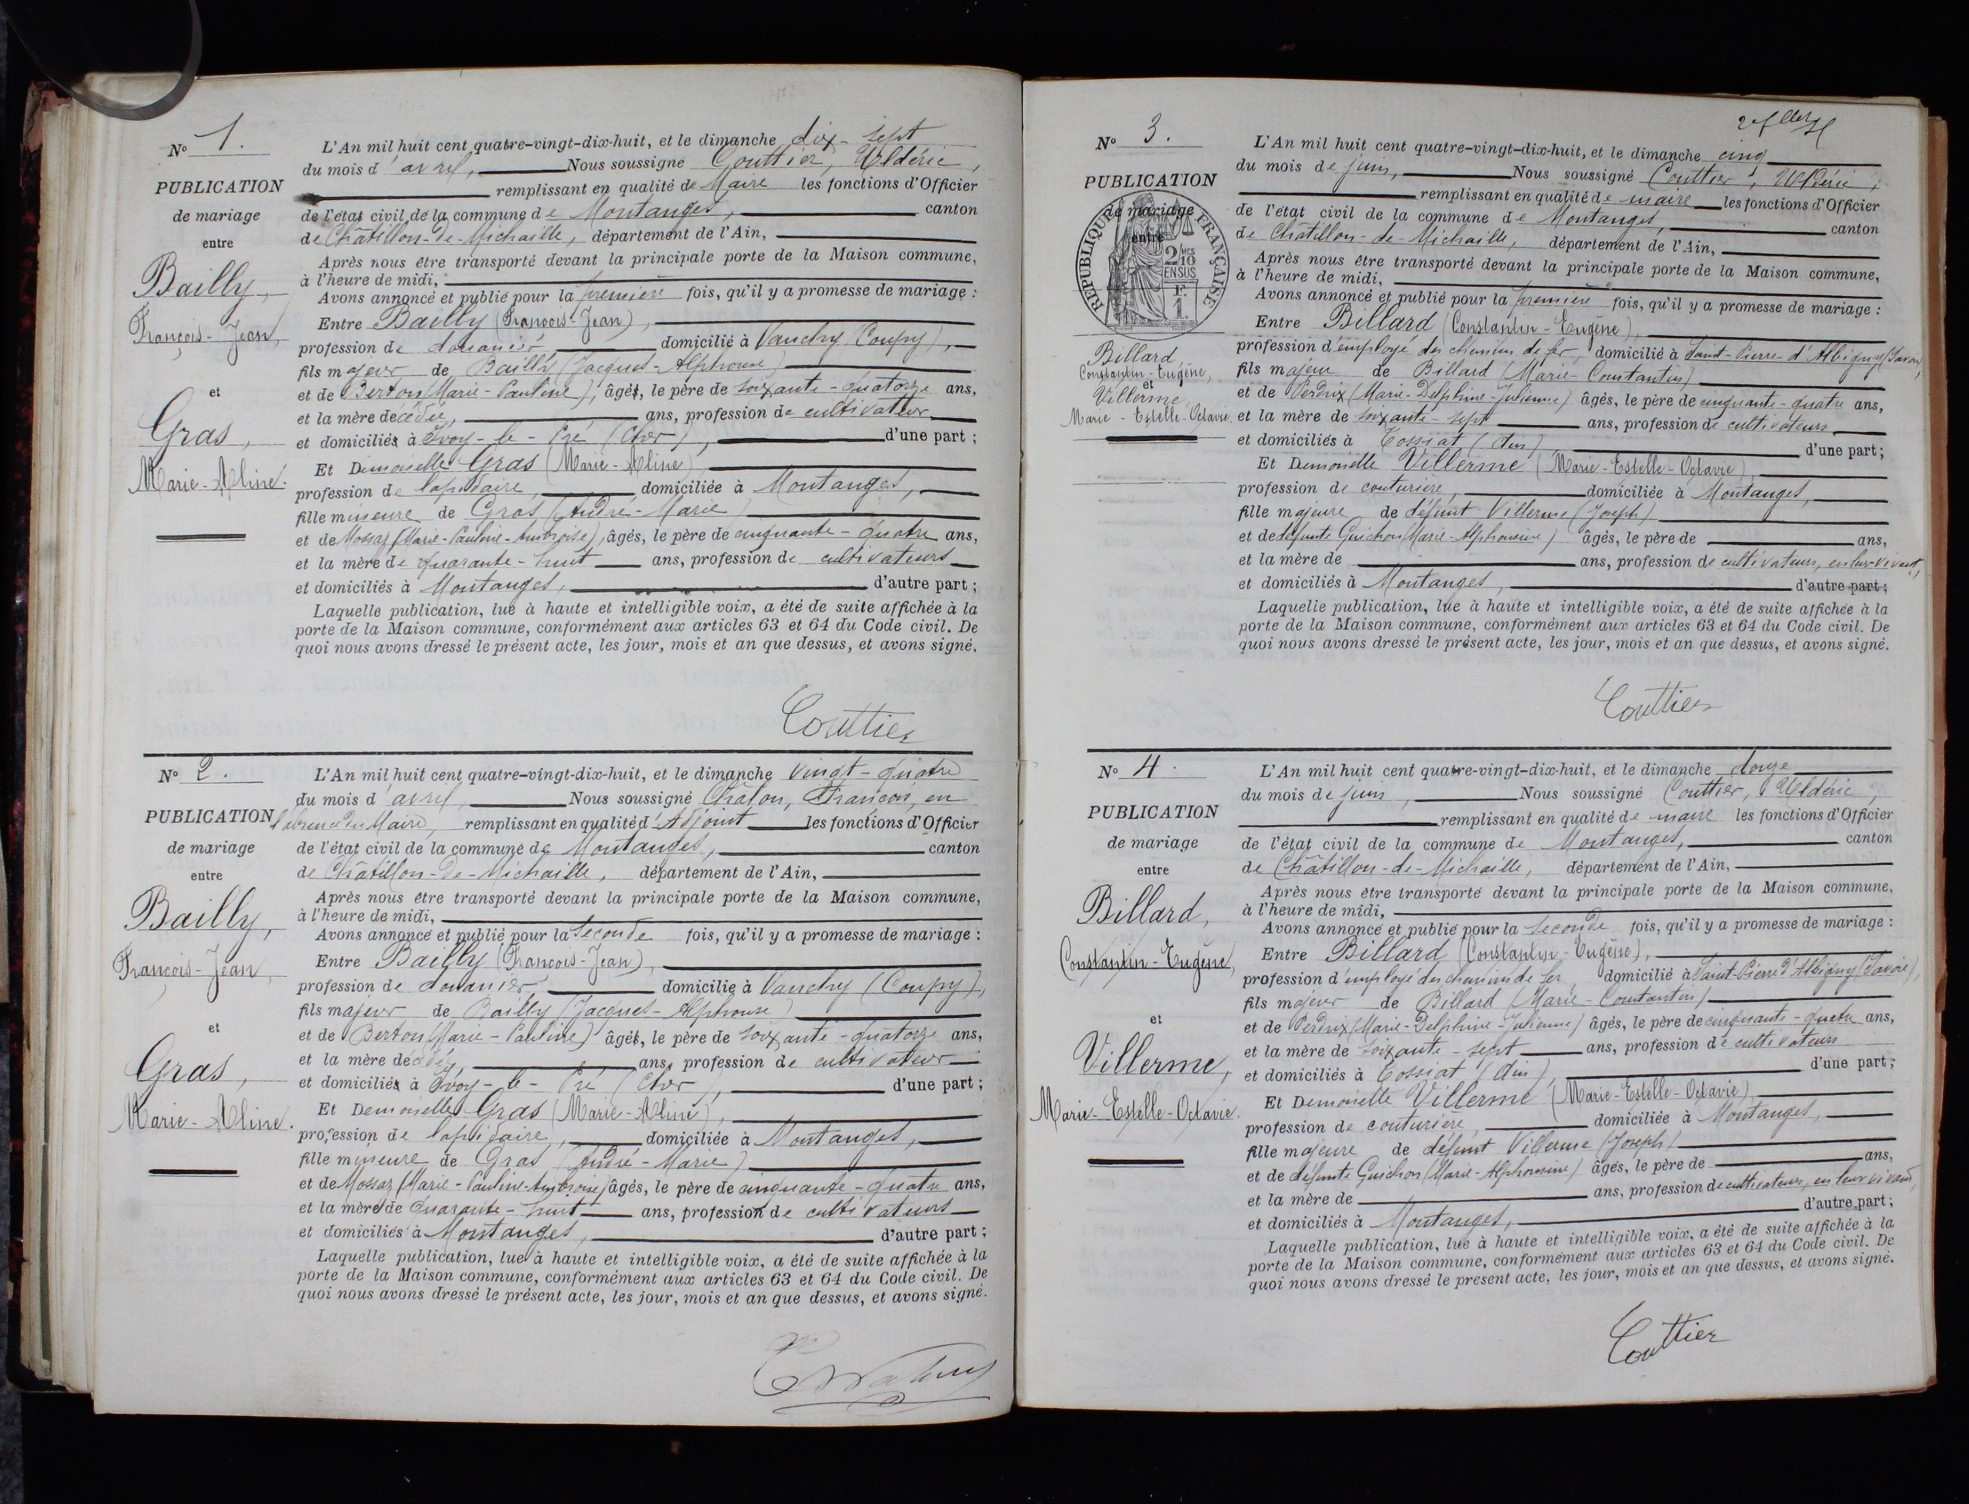 N° 1.
PUBLICATION
de mariage
entre
Bailly,
François-Jean,
et
Gras,
Marie-Aline.
L'An mil huit cent quatre-vingt-dix-huit, et le dimanche dix-sept
du mois d'avril, Nous soussigné Couttier, Uldéric,
remplissant en qualité de Maire les fonctions d'Officier
de l'état civil de la commune de Montanges, canton
de Châtillon-de-Michaille, département de l'Ain,
Après nous être transporté devant la principale porte de la Maison commune,
à l'heure de midi,
Avons annoncé et publié pour la première fois, qu'il y a promesse de mariage :
Entre Bailly (François-Jean),
profession de douanier domicilié à Vanchy (Coupy),
fils majeur de Bailly (Jacques-Alphonse)
et de Berton (Marie-Pauline), âgés, le père de soixante-quatorze ans,
et la mère décédée, ans, profession de cultivateur
et domiciliés à Ivoy-le-Pré (Cher), d'une part ;
Et Demoiselle Gras (Marie-Aline)
profession de lapidaire, domiciliée à Montanges,
fille mineure de Gras (André-Marie)
et de Mossaz (Marie-Pauline-Ambroise), âgés, le père de cinquante-quatre ans,
et la mère de quarante-huit ans, profession de cultivateurs
et domiciliés à Montanges, d'autre part ;
Laquelle publication, lue à haute et intelligible voix, a été de suite affichée à la
porte de la Maison commune, conformément aux articles 63 et 64 du Code civil. De
quoi nous avons dressé le présent acte, les jour, mois et an que dessus, et avons signé.
Couttier
N° 2.
PUBLICATION
de mariage
entre
Bailly,
François-Jean,
et
Gras,
Marie-Aline.
L'An mil huit cent quatre-vingt-dix-huit, et le dimanche vingt-quatre
du mois d'avril, Nous soussigné Châlon, François, en
l'absence du Maire, remplissant en qualité d'Adjoint les fonctions d'Officier
de l'état civil de la commune de Montanges, canton
de Châtillon-de-Michaille, département de l'Ain,
Après nous être transporté devant la principale porte de la Maison commune,
à l'heure de midi,
Avons annoncé et publié pour la seconde fois, qu'il y a promesse de mariage :
Entre Bailly (François-Jean),
profession de douanier, domicilié à Vanchy (Coupy),
fils majeur de Bailly (Jacques-Alphonse)
et de Berton (Marie-Pauline) âgés, le père de soixante-quatorze ans,
et la mère décédée, ans, profession de cultivateur
et domiciliés à Ivoy-le-Pré (Cher), d'une part ;
Et Demoiselle Gras (Marie-Aline),
profession de lapidaire, domiciliée à Montanges,
fille mineure de Gras (André-Marie)
et de Mossaz (Marie-Pauline-Ambroise) âgés, le père de cinquante-quatre ans,
et la mère de quarante-huit ans, profession de cultivateurs
et domiciliés à Montanges, d'autre part ;
Laquelle publication, lue à haute et intelligible voix, a été de suite affichée à la
porte de la Maison commune, conformément aux articles 63 et 64 du Code civil. De
quoi nous avons dressé le présent acte, les jour, mois et an que dessus, et avons signé.
N° 3.
PUBLICATION
de mariage
entre
RÉPUBLIQUE FRANÇAISE
2/10
EN SUS
Billard,
Constantin-Eugène,
et
Villerme
Marie-Estelle-Octavie.
L'An mil huit cent quatre-vingt-dix-huit, et le dimanche cinq
du mois de juin, Nous soussigné Couttier, Uldéric,
remplissant en qualité de maire les fonctions d'Officier
de l'état civil de la commune de Montanges, canton
de Châtillon-de-Michaille, département de l'Ain,
Après nous être transporté devant la principale porte de la Maison commune,
à l'heure de midi,
Avons annoncé et publié pour la première fois, qu'il y a promesse de mariage :
Entre Billard (Constantin-Eugène),
profession d'employé des chemins de fer, domicilié à Saint-Pierre-d'Albigny (Savoie),
fils majeur de Billard (Marie-Constantin)
et de Perdrix (Marie-Delphine-Julienne) âgés, le père de cinquante-quatre ans,
et la mère de soixante-sept ans, profession de cultivateurs
et domiciliés à Cossiat (Ain) d'une part ;
Et Demoiselle Villerme (Marie-Estelle-Octavie)
profession de couturière, domiciliée à Montanges,
fille majeure de défunt Villerme (Joseph)
et de défunte Guichon (Marie-Alphonsine) âgés, le père de ans,
et la mère de ans, profession de cultivateurs, en leur vivant,
et domiciliés à Montanges, d'autre part ;
Laquelle publication, lue à haute et intelligible voix, a été de suite affichée à la
porte de la Maison commune, conformément aux articles 63 et 64 du Code civil. De
quoi nous avons dressé le présent acte, les jour, mois et an que dessus, et avons signé.
Couttier
N° 4.
PUBLICATION
de mariage
entre
Billard,
Constantin-Eugène,
et
Villerme,
Marie-Estelle-Octavie.
L'An mil huit cent quatre-vingt-dix-huit, et le dimanche douze
du mois de juin, Nous soussigné Couttier, Uldéric,
remplissant en qualité de maire les fonctions d'Officier
de l'état civil de la commune de Montanges, canton
de Châtillon-de-Michaille, département de l'Ain,
Après nous être transporté devant la principale porte de la Maison commune,
à l'heure de midi,
Avons annoncé et publié pour la seconde fois, qu'il y a promesse de mariage :
Entre Billard (Constantin-Eugène),
profession d'employé des chemins de fer, domicilié à Saint-Pierre d'Albigny (Savoie),
fils majeur de Billard (Marie-Constantin)
et de Perdrix (Marie-Delphine-Julienne) âgés, le père de cinquante-quatre ans,
et la mère de soixante-sept ans, profession de cultivateurs
et domiciliés à Cossiat (Ain) d'une part ;
Et Demoiselle Villerme (Marie-Estelle-Octavie),
profession de couturière, domiciliée à Montanges,
fille majeure de défunt Villerme (Joseph)
et de défunte Guichon (Marie-Alphonsine) âgés, le père de ans,
et la mère de ans, profession de cultivateurs, en leur vivant,
et domiciliés à Montanges, d'autre part ;
Laquelle publication, lue à haute et intelligible voix, a été de suite affichée à la
porte de la Maison commune, conformément aux articles 63 et 64 du Code civil. De
quoi nous avons dressé le présent acte, les jour, mois et an que dessus, et avons signé.
Couttier